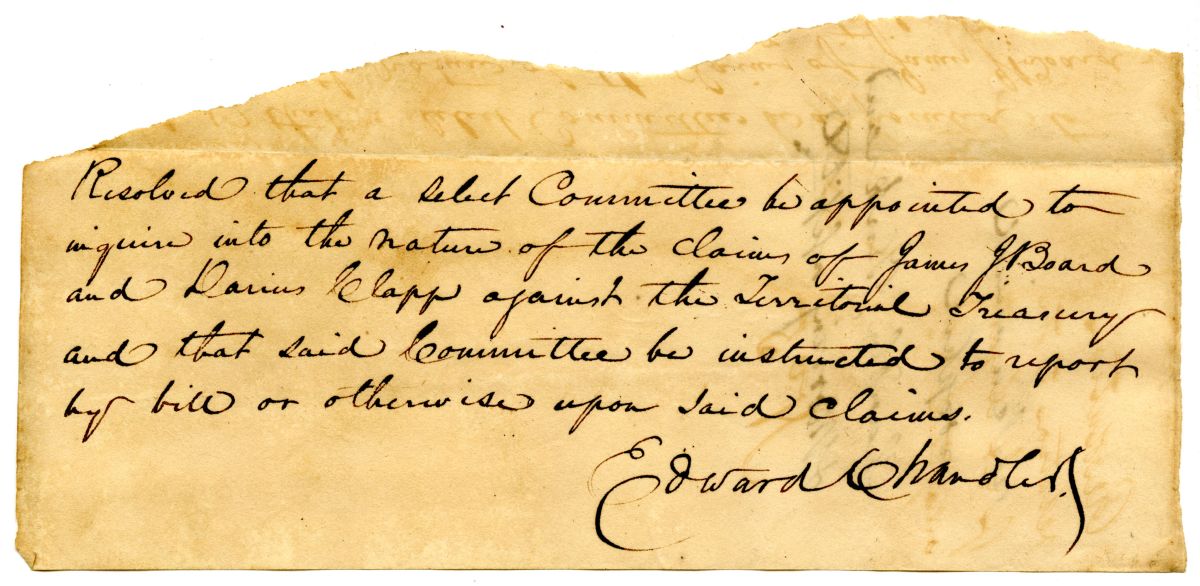 Resolved that a select Committee be appointed to
inquire into the nature of the claims of James J Board
and Darius Clapp against the Territorial Treasury
and that said Committee be instructed to report
by bill or otherwise upon said claims.
Edward Chandler